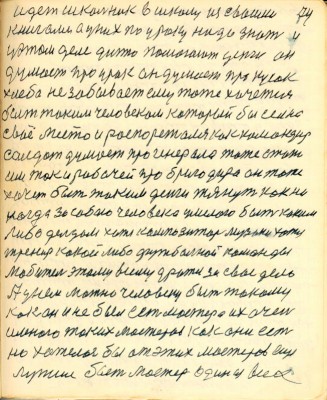 идет школник в школу из своими 74
книгами а у них по уроку надо знат и
у этом деле дитю помогают деги он
думает про урок он думает про кусок
хлеба не забывает ему тоже хочется
быт таким человеком который бы сели на
своё место и распорежался как командир
солдат думает про генерала тоже стат
им такирабачей про бригадира он тоже
хочет быт таким денги тянут как не
когда за собою человека умелого быт каким
либо делдом хотя композитор музыки хотя
тренер какой либо футбалной команды
любител этому всему драти за свае дело
А у нем можно человеку быт такому
как он и не был ест мастера их очен
много таких мастеров как они ест
но хателос бы от этих мастеров ещё
лутше быт мастер один на всех